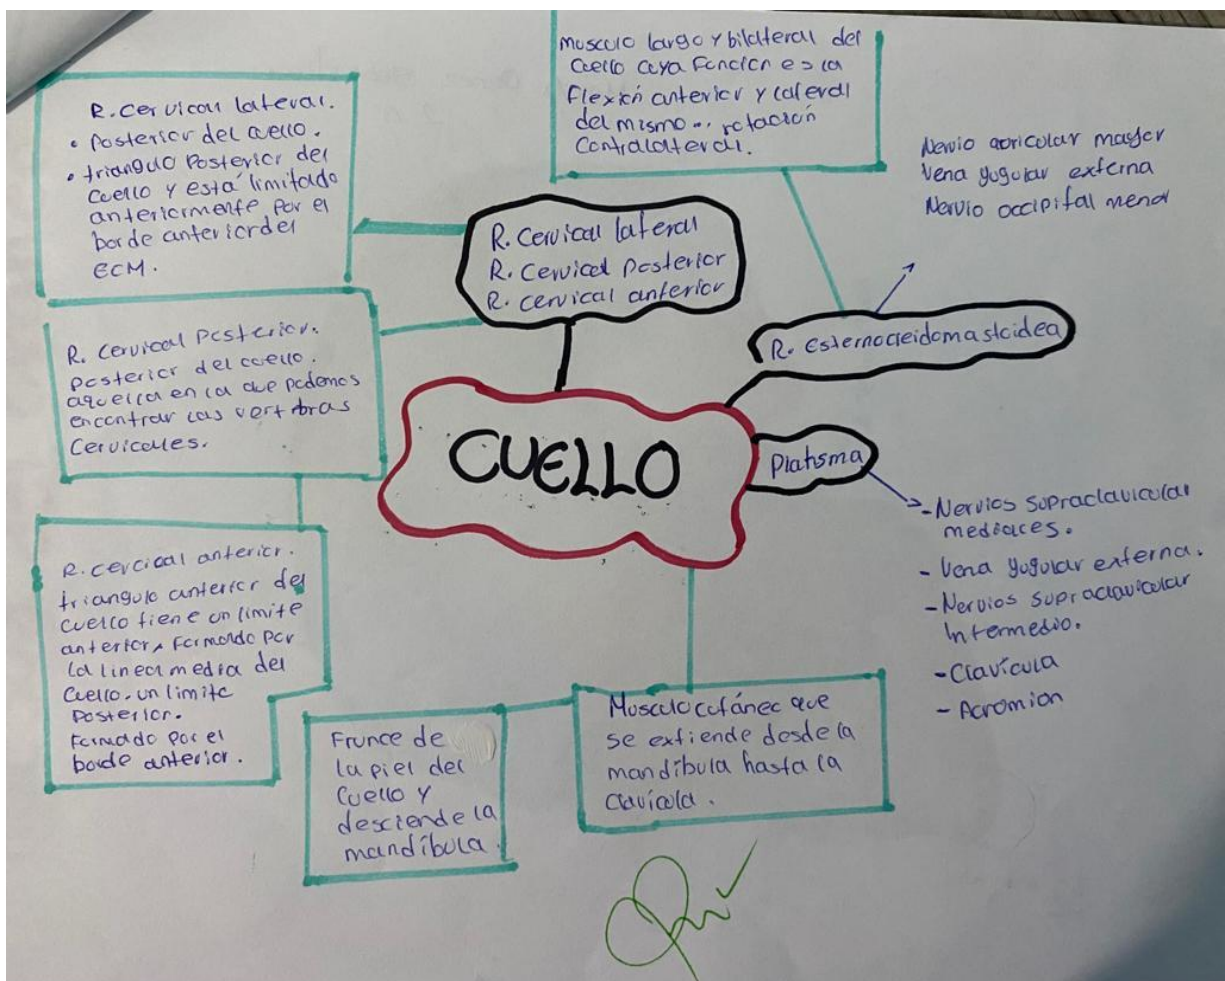 CUELLO
R. Cervical lateral
R. Cervical Posterior
R. cervical anterior
R. Cervical lateral.
• Posterior del cuello.
• triangulo Posterior del
cuello y está limitado
anteriormente por el
borde anterior del
ECM.
R. Cervical Posterior.
Posterior del cuello.
aquella en la que podemos
encontrar las vertbras
Cervicales.
R. cervcial anterior.
triangulo anterior del
cuello tiene un limite
anterior, Formado por
la linea media del
cuello. un limite
Posterior.
Formado por el
borde anterior.
Musculo largo y bilateral del
cuello cuya Función es la
Flexión anterior y lateral
del mismo... rotación
Contralateral.
R. Esternocleidomastoidea
Nervio auricular mayor
Vena yugular externa
Nervio occipital menor
Platisma
- Nervios supraclavicular
mediales.
- Vena yugular externa.
- Nervios supraclavicular
Intermedio.
- Clavícula
- Acromion
Musculo cutáneo que
se extiende desde la
mandíbula hasta la
clavícula.
Frunce de
la piel del
cuello y
desciende la
mandíbula.